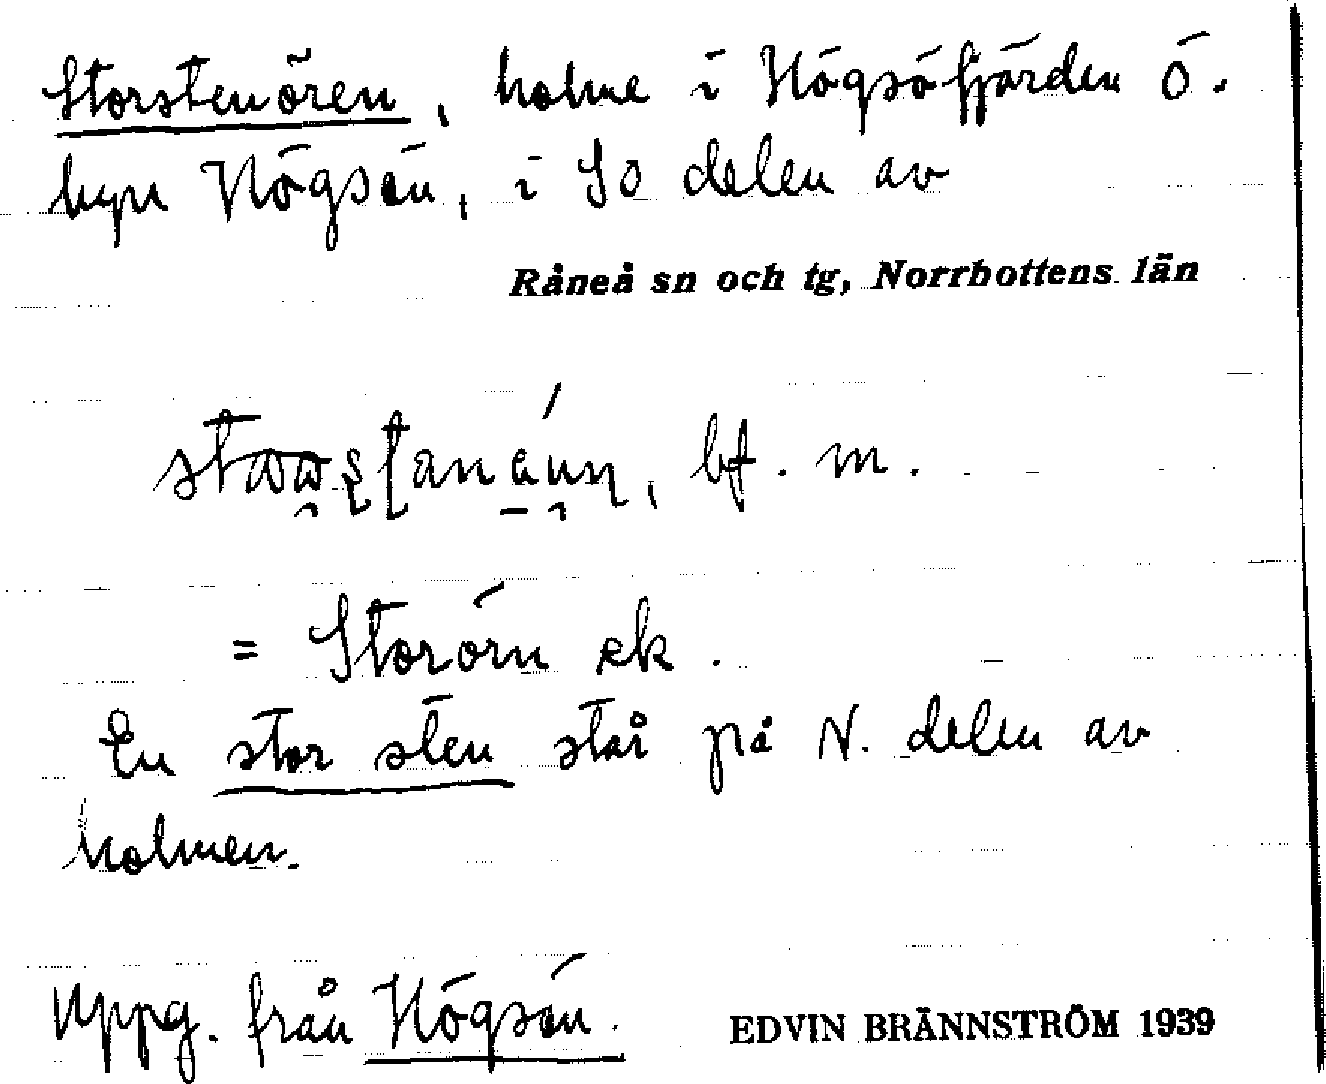 Storstenören, holme i Högsöfjärden Ö.
byn Högsön, i SO delen av
Råneå sn och tg, Norrbottens län
bf. m.
= Storörn ek.
En stor sten står på N. delen av
holmen.
Uppg. från Högsön.
EDVIN BRÄNNSTRÖM 1939